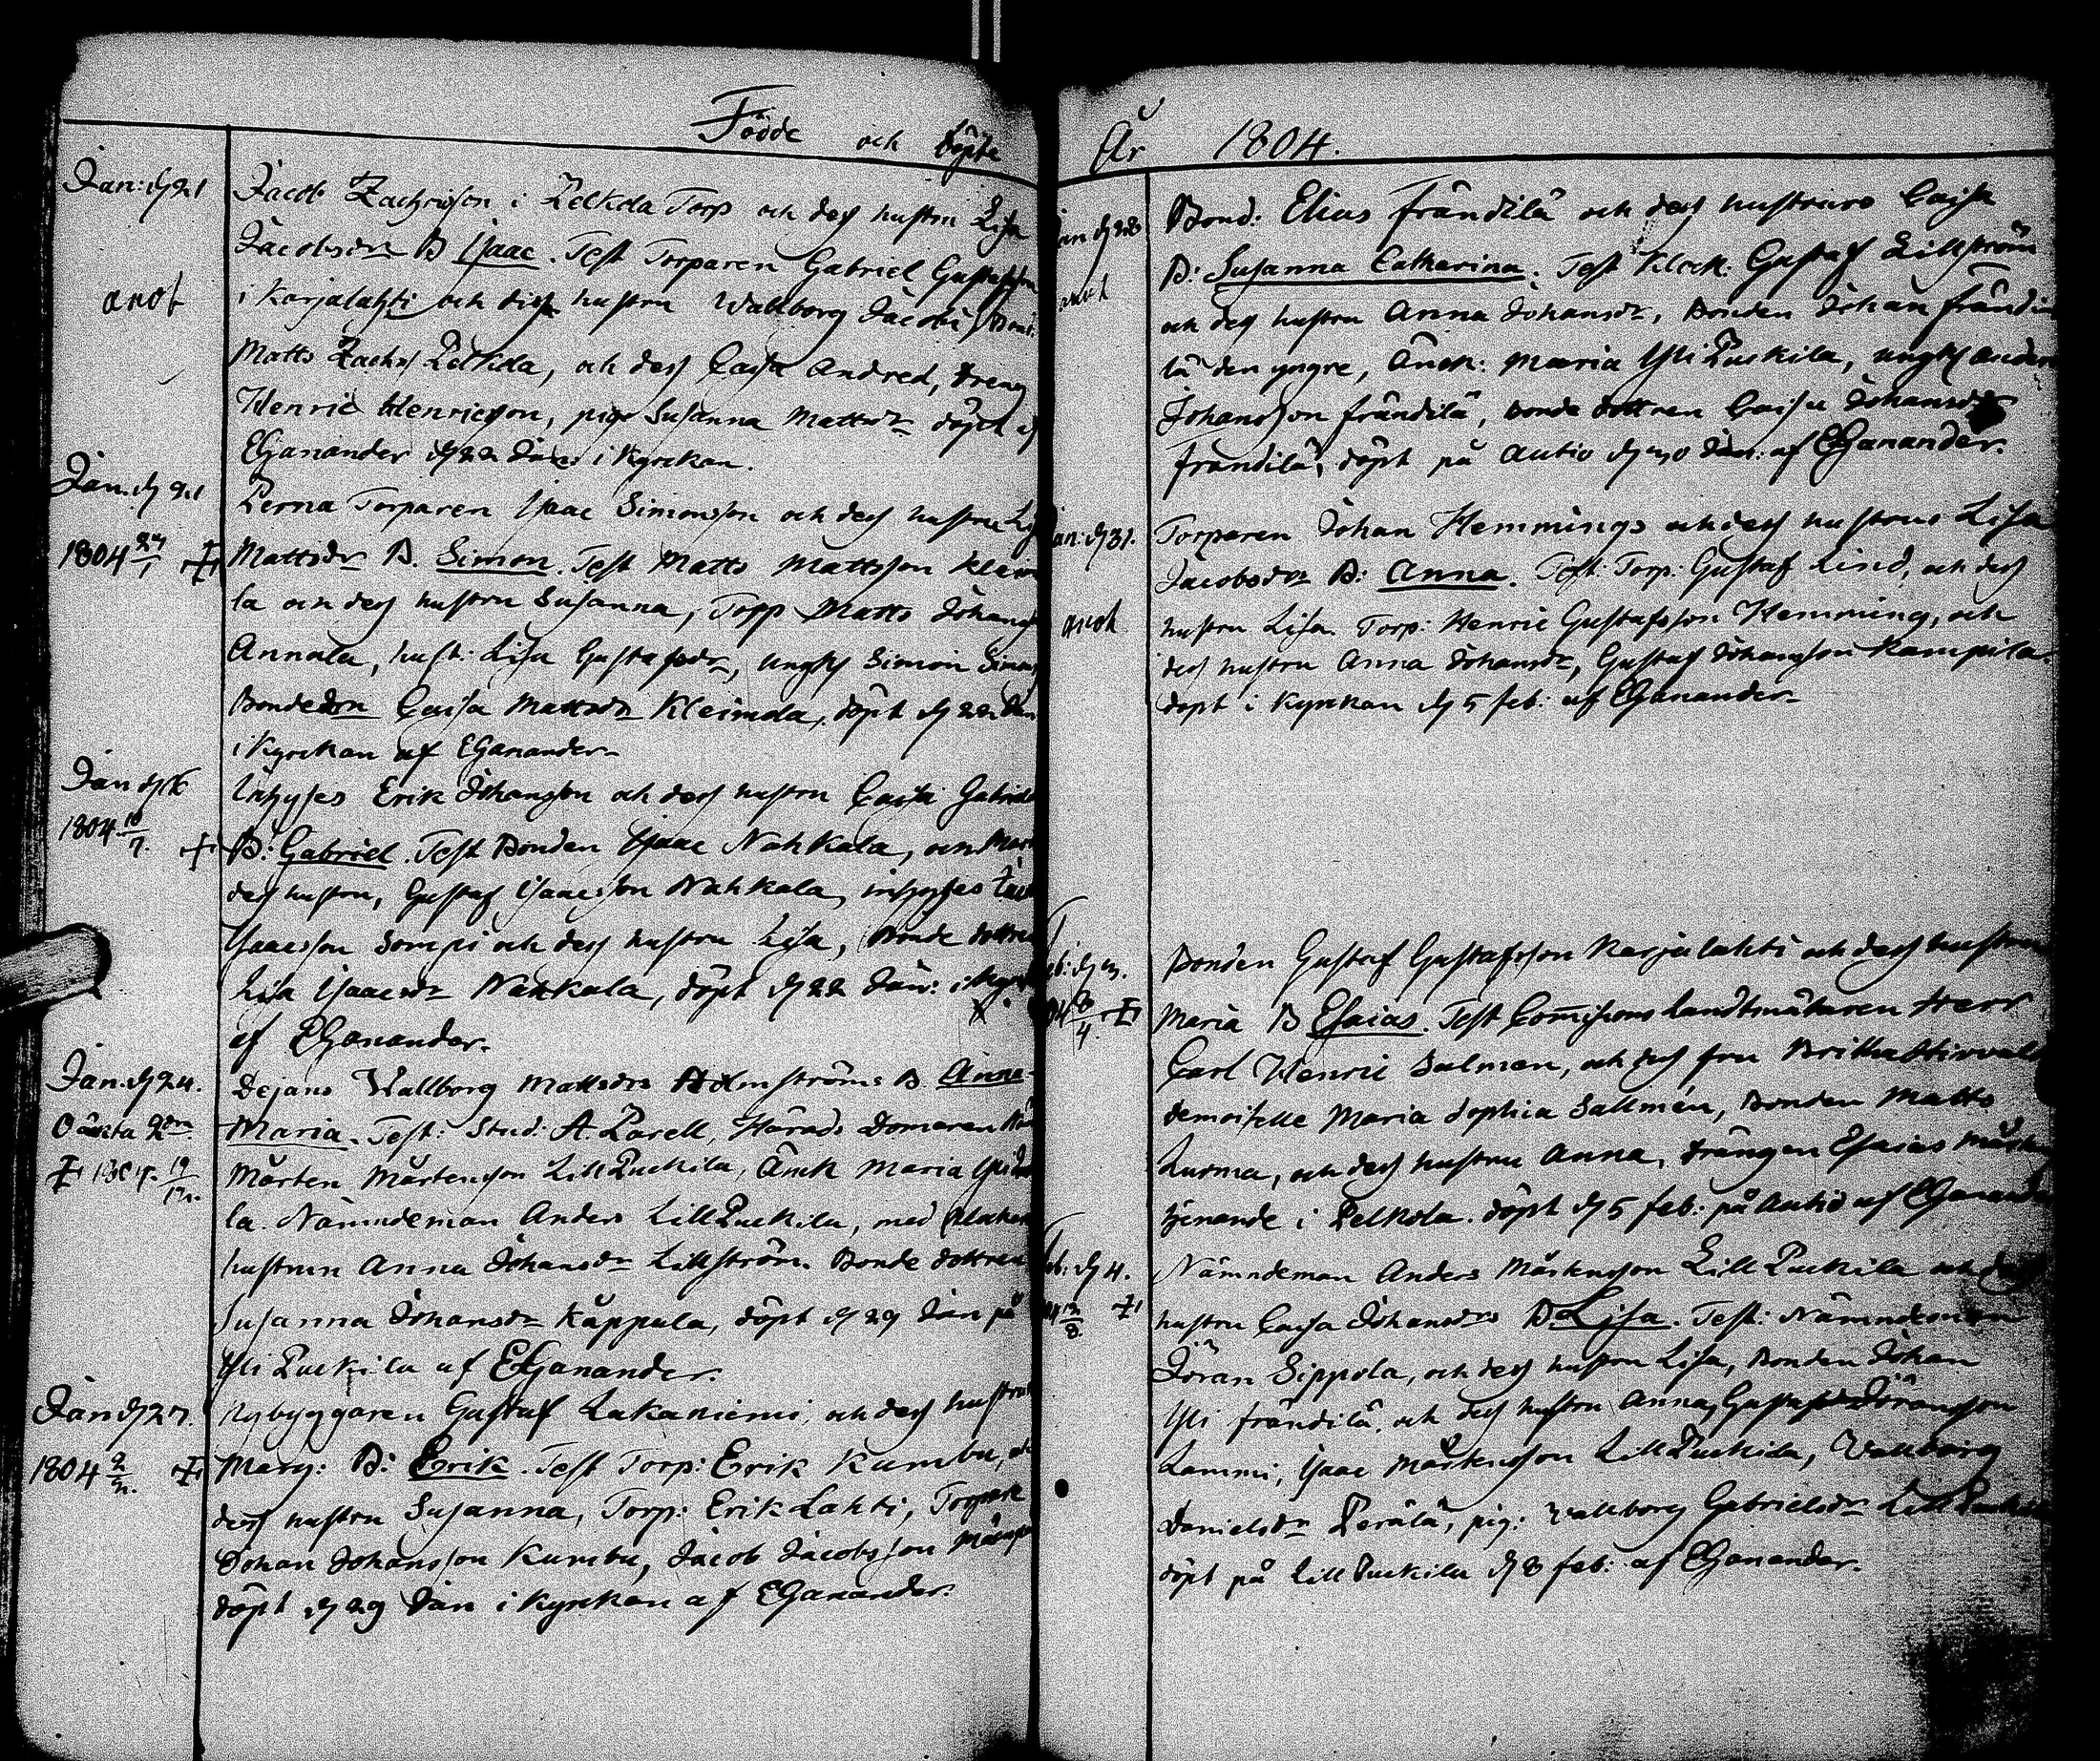 Födde och döpte
Jan: d 21
Jacob Zachrisson i Pelkola Torp och dess hustru Lisa
Jacobsdr B Isaac. Test Torparen Gabriel Gustafsson
anot
i Karjalahti och dess hustru Wallborg Jacobs, Bond:
Matts Zachrs Pelkola, och dess Caisa Andred, dreng
Henric Henricsson, piga Susanna Mattsdr döpt af
EGanander d 22 Jan: i Kyrckan.
Jan. d 21
Perna Torparen Isaac Simonsson och dess hustru Lis
1804 27/1 Mattsdr B. Simon. Test Matts Mattsson Kleimo
la och dess hustru Susanna, Torp Matts Johanss
Annala, hust: Lisa Gustafsdr, ungk Simon Simons
Bondedon Caisa Mattsdr Kleimola, döpt d 22 Jan
i Kyrckan af EGanander
Jan d 16
Inhyses Erik Johansson och dess hustru Caisa Gabriels
1804 18/7. B: Gabriel. Test Bonden Isaac Nahkala, och Mar
dess hustru, Gustaf Isaacsson Nahkala, inhyses
Isaacsson Sompi och dess hustru Lisa, Bonde dottren
Lisa Isaacsdr Nahkala, döpt d 22 Jan: i Kyrk
af EGanander.
Jan. d 24.
Dejans Wallborg Mattsdrs Holmströms B. Anna
Oäkta 2dra
Maria. Test: Stud: A. Parell, Härads Domaren
1804. 19/12. Mårten Mårtensson LillPuckila, Änck Maria
la. Nämndeman Anders LillPuckila, med Klockare
hustrun Anna Johansdr Lillström. Bonde dottren
Susanna Johansdr Kåppala, döpt d 29 Jan på
Yli Puckila af EGanander.
Jan d 27.
Nybyggaren Gustaf Lakaniemi, och dess hustru
1804 2/2. Marg: B: Erik. Test Torp: Erik Kumbu, och
dess hustru Susanna, Torp: Erik Lahti, Torpare
Johan Johansson Kumbu, Jacob Jacobsson
döpt d 29 Jan i Kyrckan af EGanander
År 1804.
Jan d 28
Bond: Elias Frändilä och dess hustrurs Caisa
B: Susanna Catharina. Test Klock: Gustaf Lillström
anot
och dess hustru Anna Johansdr, Bonden Johan Frändi
lä den yngre, Änck: Maria Yli Puckila, ungk Anders
Johansson Frändilä, bonde dottren Caisa Johansdr
Frändilä, döpt på Autio d 30 Jan: af EGanander.
Jan: d 31.
Torparen Johan Hemmings och dess hustrus Lisa
Jacobsdr B: Anna. Test: Torp: Gustaf Lind, och dess
anot
hustru Lisa. Torp: Henric Gustafsson Hemming, och
dess hustru Anna Johansdr, Gustaf Johansson Kampila.
döpt i Kyrckan d 5 feb: af EGanander
Feb: d 3.
Bonden Gustaf Gustafsson Karjalahti och dess hustru
Maria B Esaias. Test Commissions Landtmätaren Herr
Carl Henric Salmen, och dess fru Britha
demoiselle Maria Sophia Sallmén, Bonden Matts
Lurma, och dess hustru Anna, drängen Esaias
tjenande i Pelkola. döpt d 5 feb: på Autio af EGanander
Feb: d 4.
Nämndeman Anders Mårtensson Lill Puckila och dess
hustru Caisa Johansdrs B. Lisa. Test: Nämndeman
Jöran Sippola, och dess hustru Lisa, Bonden Johan
Yli Frändilä, och dess hustru Anna, Gustaf Göransson
Lammi, Isaac Mårtensson LillPuckila, Wallborg
Danielsdr Perälä, pig: Wallborg Gabrielsdr Lill Puckila
döpt på LillPuckila d 8 feb: af EGanander.